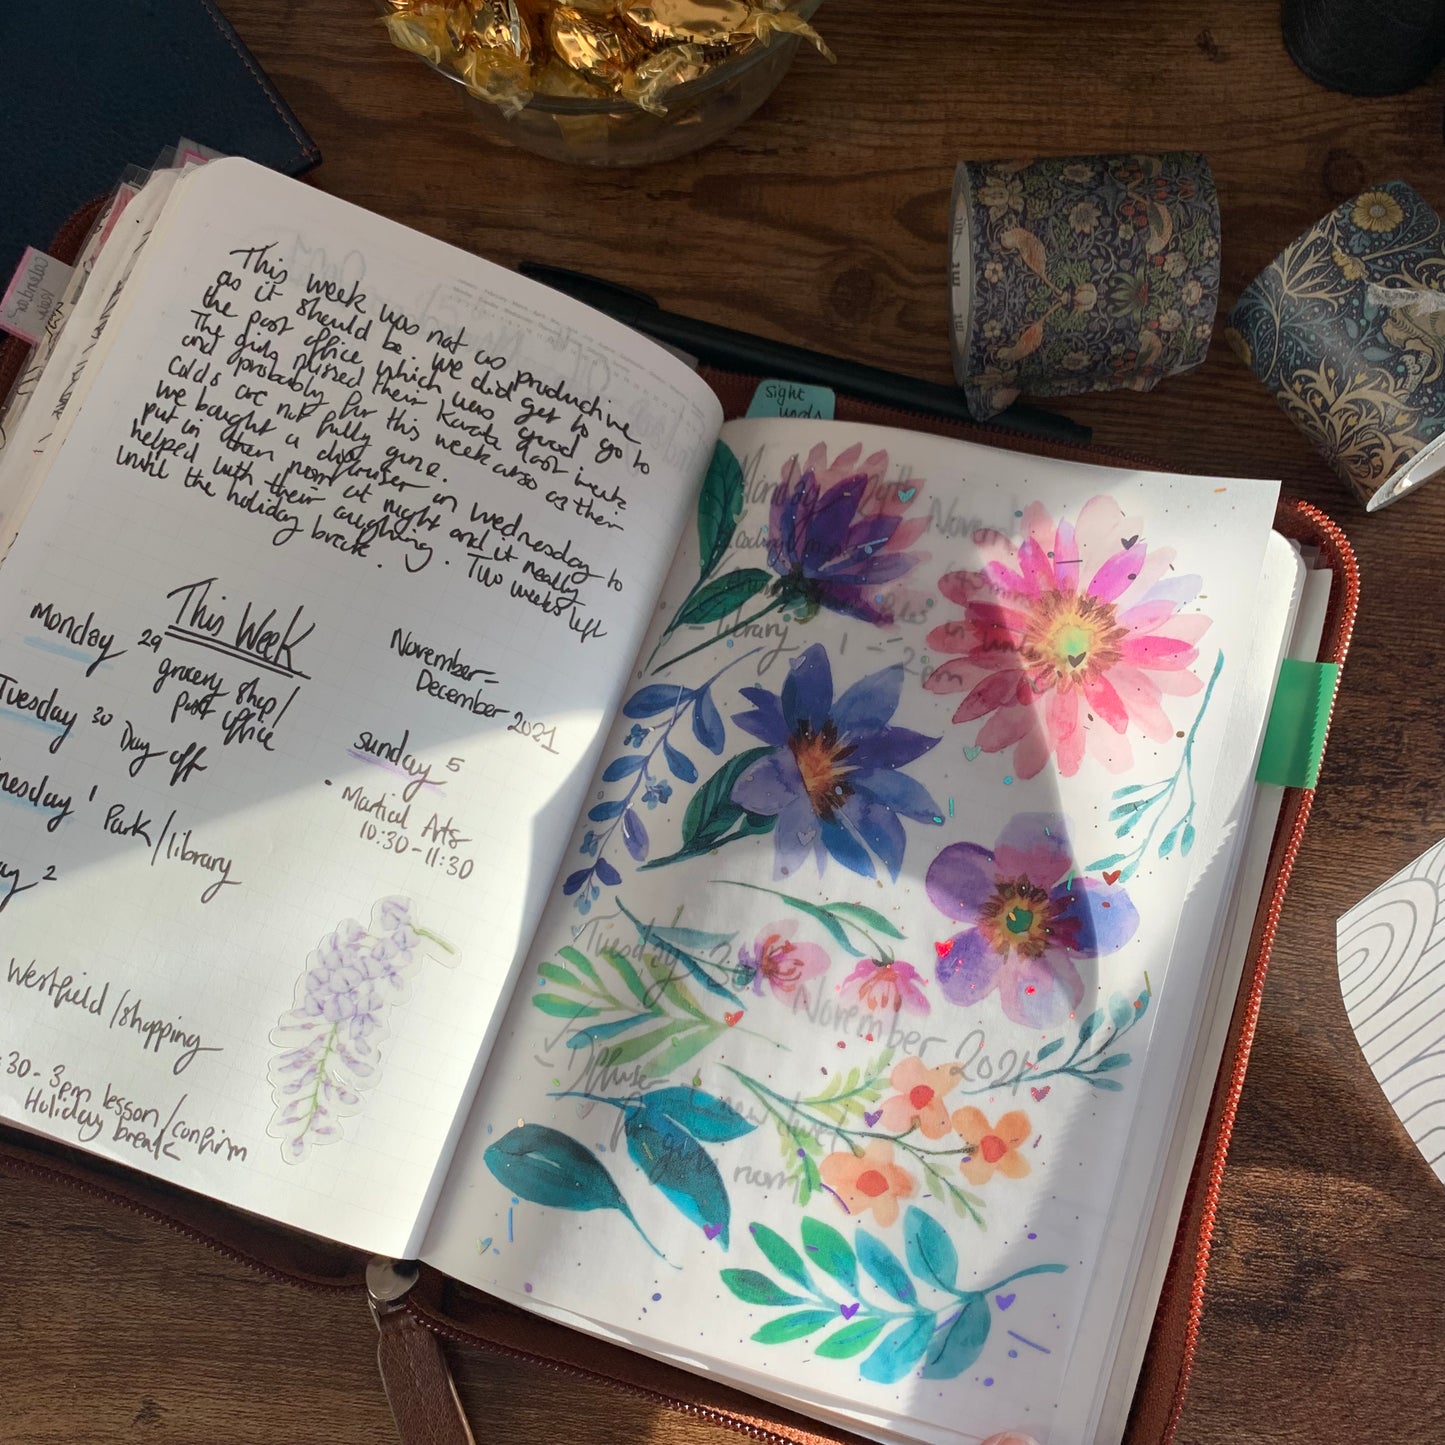 This week was not as productive
as it should be. We did get to go to
the post office which was good
The girls missed their Karate last week
and probably for this week also as their
colds are not fully gone.
We bought a diffuser on Wednesday to
put in their room at night and it really
helped with their coughing. Two weeks left
until the holiday break.
This Week
November -
December 2021
Monday 29
grocery shop/
Post office
Tuesday 30 Day off
nesday 1 Park/library
ay 2
Westfield/shopping
:30 - 3pm lesson/confirm
Holiday break
Sunday 5
Martial Arts
10:30 - 11:30
sight
words
mt
mt
Monday 29th
- library 1 - 2pm
Tuesday 30th
November 2021
Diffuser
room